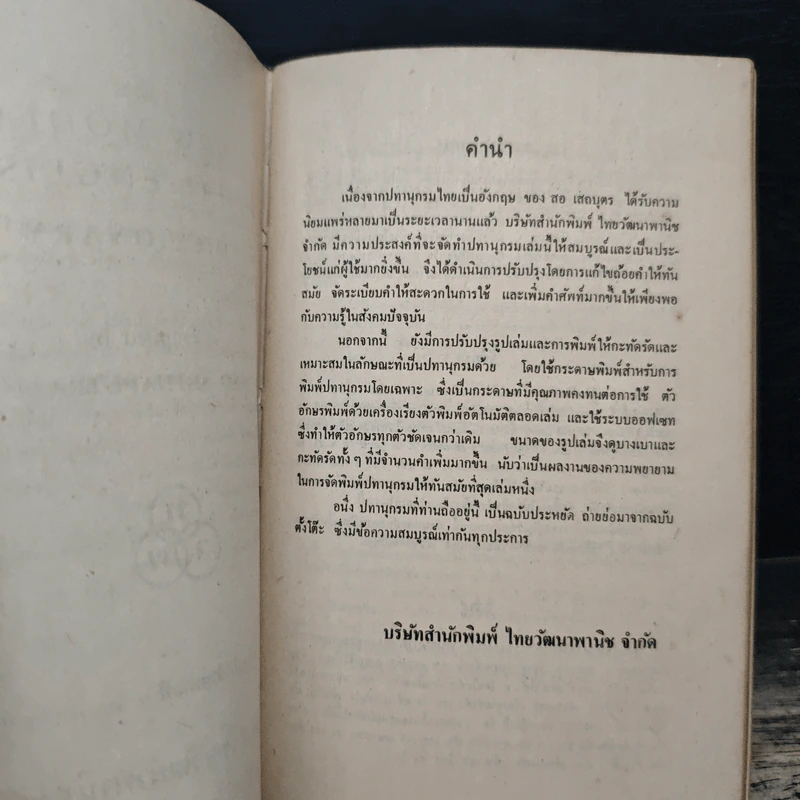 คำนำ
เนื่องจากปทานุกรมไทยเป็นอังกฤษ ของ สอ เสถบุตร ได้รับความ
นิยมแพร่หลายมาเป็นระยะเวลานานแล้ว บริษัทสำนักพิมพ์ ไทยวัฒนาพานิช
จำกัด มีความประสงค์ที่จะจัดทำปทานุกรมเล่มนี้ให้สมบูรณ์และเป็นประ-
โยชน์แก่ผู้ใช้มากยิ่งขึ้น จึงได้ดำเนินการปรับปรุงโดยการแก้ไขถ้อยคำให้ทัน
สมัย จัดระเบียบคำให้สะดวกในการใช้ และเพิ่มคำศัพท์มากขึ้นให้เพียงพอ
กับความรู้ในสังคมปัจจุบัน
นอกจากนี้ ยังมีการปรับปรุงรูปเล่มและการพิมพ์ให้กะทัดรัดและ
เหมาะสมในลักษณะที่เป็นปทานุกรมด้วย โดยใช้กระดาษพิมพ์สำหรับการ
พิมพ์ปทานุกรมโดยเฉพาะ ซึ่งเป็นกระดาษที่มีคุณภาพคงทนต่อการใช้ ตัว
อักษรพิมพ์ด้วยเครื่องเรียงตัวพิมพ์อัตโนมัติตลอดเล่ม และใช้ระบบออฟเซท
ซึ่งทำให้ตัวอักษรทุกตัวชัดเจนกว่าเดิม ขนาดของรูปเล่มจึงดูบางเบาและ
กะทัดรัดทั้ง ๆ ที่มีจำนวนคำเพิ่มมากขึ้น นับว่าเป็นผลงานของความพยายาม
ในการจัดพิมพ์ปทานุกรมให้ทันสมัยที่สุดเล่มหนึ่ง
อนึ่ง ปทานุกรมที่ท่านถืออยู่นี้ เป็นฉบับประหยัด ถ่ายย่อมาจากฉบับ
ตั้งโต๊ะ ซึ่งมีข้อความสมบูรณ์เท่ากันทุกประการ
บริษัทสำนักพิมพ์ ไทยวัฒนาพานิช จำกัด